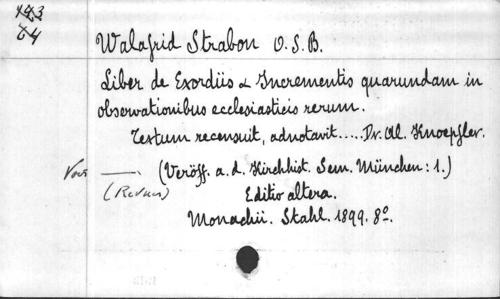 143
64
Walafrid Strabon O.S.B.
Liber de Exordiis & Incrementis quarundam in
observationibus ecclesiasticis rerum.
Textum recensuit, adnotavit.....Dr. Al. Knoepfler.
(Veröff. a. d. Kirchhist. Sem. München: 1.)
Editio altera.
Monachii. Stahl. 1899. 8º.